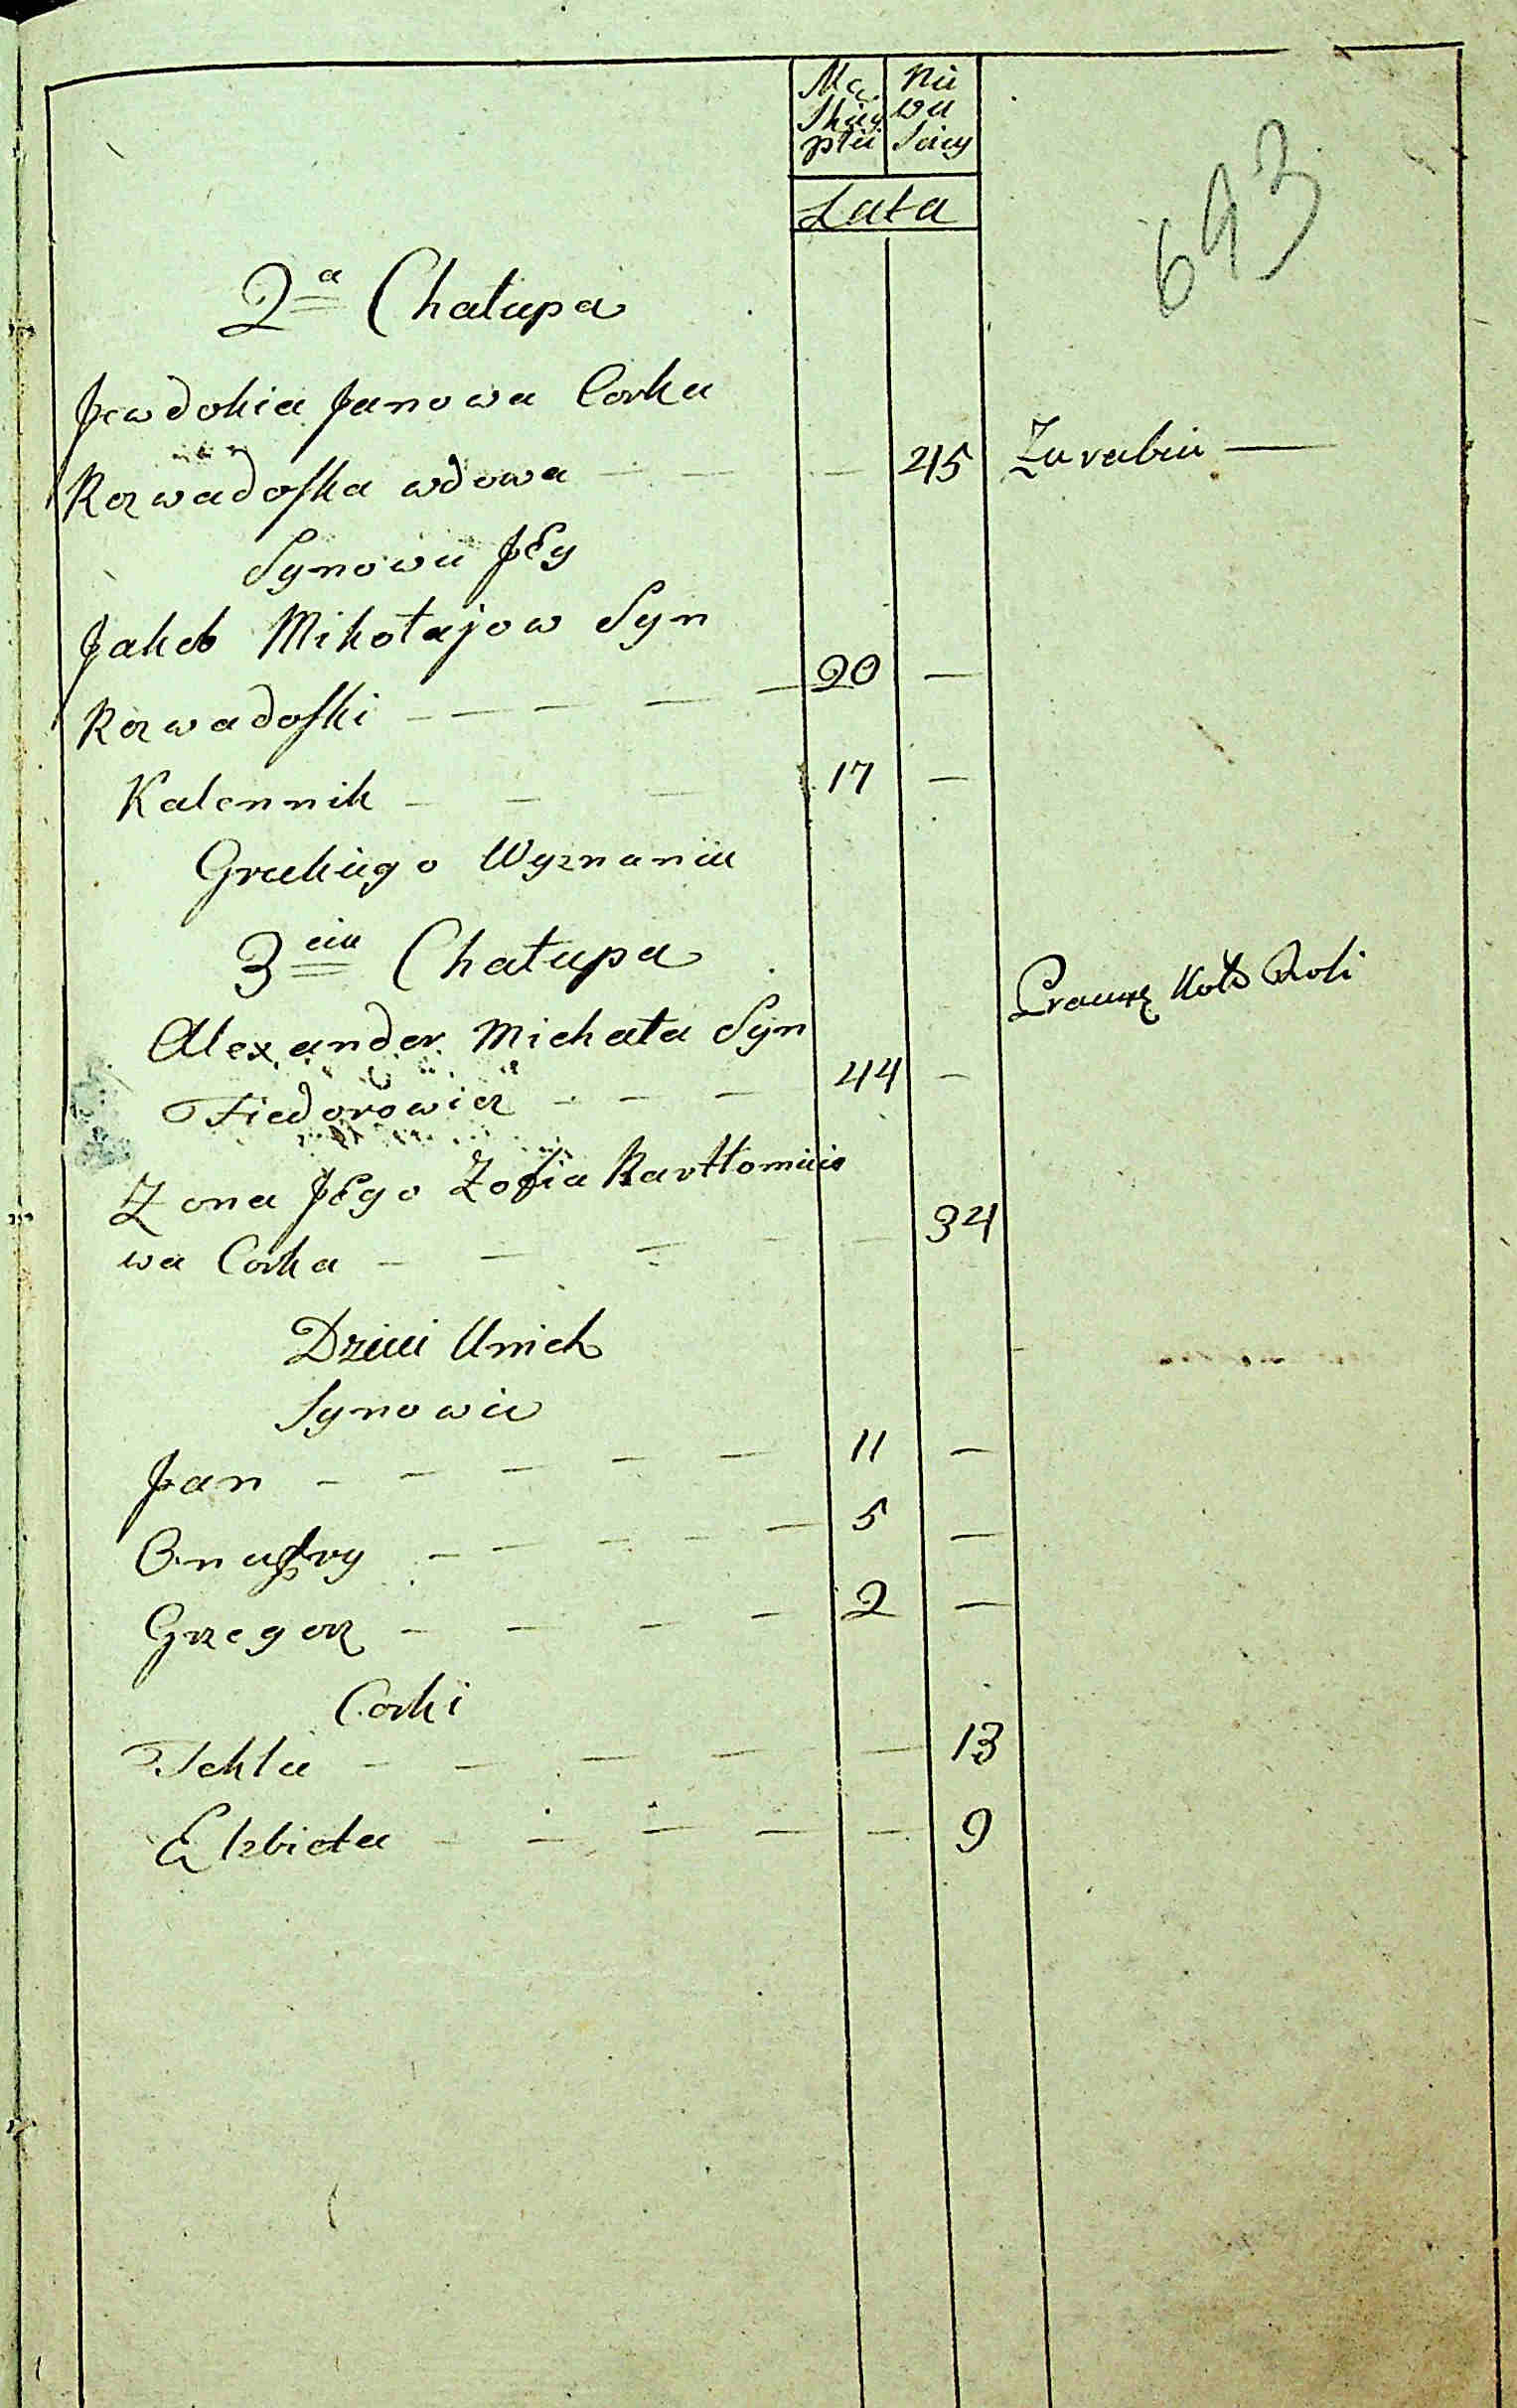 Mę Nie
Skiey wie
płci Sciey
Lata
693
2a Chałupa
Jewdokia Janowa Corka
Rozwadoska wdowa — — — 45 Zarabia —
Synowie JEy
Jakob Mikołajow Syn
Rozwadoski — — — — — 20 —
Kalennik — — — 17 —
Greckiego Wyznania
3cia Chałupa
Pracuje koło Roli
Alexander Michała Syn
Fiedorowicz — — — 44 —
Zona JEgo Zofia Bartłomieio
wa Corka — — — — — 34
Dzieci Unich
Synowie
Jan — — — — — 11 —
Onufry — — — — — 5 —
Grzegorz — — — — 2 —
Corki
Tekla — — — — — 13
Elzbieta — — — — — 9